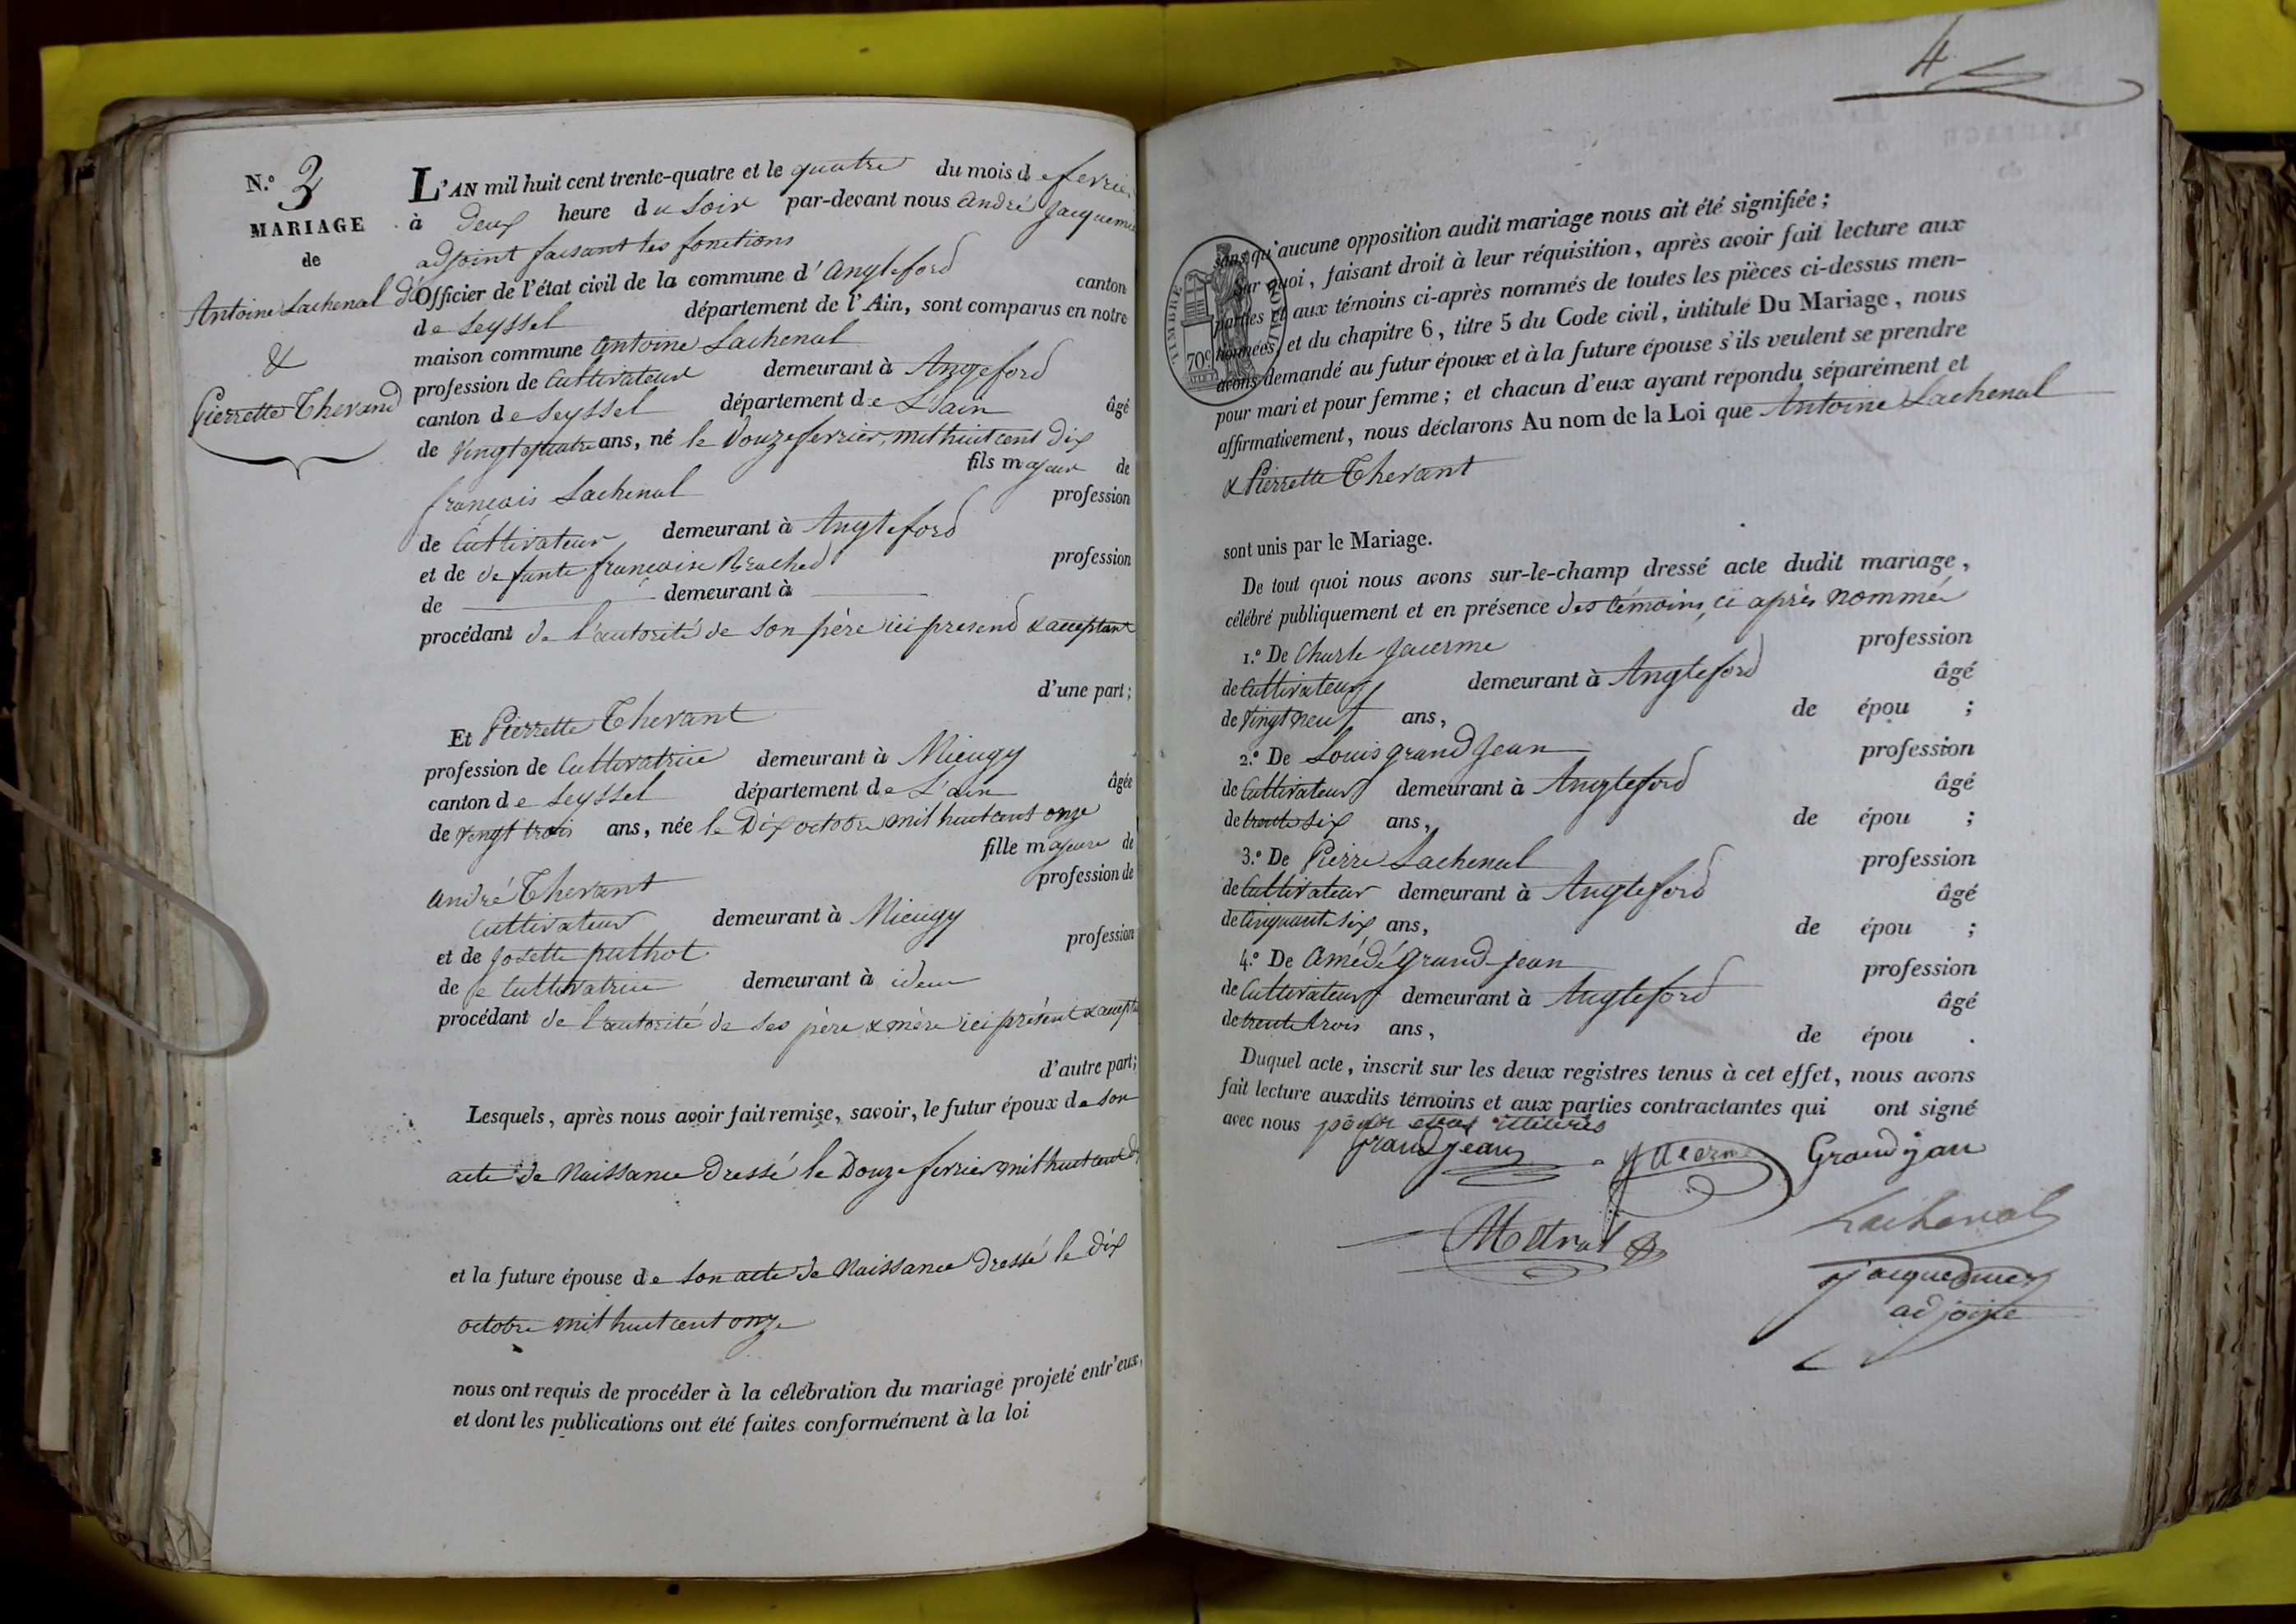 N.° 3
MARIAGE
de
Antoine Lachenal
&
Pierrette Thevand
L'AN mil huit cent trente-quatre et le quatre du mois de fevrier
à deux heure du soir par-devant nous andré
adjoint faisant les fonctions
d'Officier de l'état civil de la commune d'angleford canton
de Seyssel département de l'Ain, sont comparus en notre
maison commune antoine Lachenal
profession de Cultivateur demeurant à Angeford
canton de Seyssel département de L'ain âgé
de Vingt quatre ans, né le Douze fevrier mil huit cent dix
fils majeur de
françois Lachenal profession
de Cultivateur demeurant à Angleford
et de defunte françoise profession
de demeurant à
procédant de l'autorité de son père ici presend & acceptant
d'une part;
Et Pierrette Thevant
profession de Cultivatrice demeurant à Mieugy
canton de Seyssel département de L'ain âgée
de vingt trois ans, née le Dix octobre mil huit cent onze
fille majeure de
andré Thevant profession de
Cultivateur demeurant à Mieugy
et de Josette puthot profession
de Cultivatrice demeurant à idem
procédant de l'autorité de ses père & mère ici présent &
d'autre part;
Lesquels, après nous avoir fait remise, savoir, le futur époux de son
acte de Naissance dressé le Douze fevrier mil huit cent
et la future épouse de son acte de Naissance dressé le dix
octobre mil huit cent onze
nous ont requis de procéder à la célébration du mariage projeté entr'eux,
et dont les publications ont été faites conformément à la loi
4
TIMBRE ROYAL
70c
sans qu'aucune opposition audit mariage nous ait été signifiée;
Sur quoi, faisant droit à leur réquisition, après avoir fait lecture aux
parties et aux témoins ci-après nommés de toutes les pièces ci-dessus men-
tionnées, et du chapitre 6, titre 5 du Code civil, intitulé Du Mariage, nous
avons demandé au futur époux et à la future épouse s'ils veulent se prendre
pour mari et pour femme; et chacun d'eux ayant répondu séparément et
affirmativement, nous déclarons Au nom de la Loi que Antoine Lachenal
& Pierrette Thevant
sont unis par le Mariage.
De tout quoi nous avons sur-le-champ dressé acte dudit mariage,
célébré publiquement et en présence des témoins, ci après nommé
1.° De Charle Jacerme profession
de Cultivateur demeurant à Angleford âgé
de Vingt neuf ans, de épou ;
2.° De Louis grand Jean profession
de Cultivateur demeurant à Angleford âgé
de trente six ans, de épou ;
3.° De Pierre Lachenal profession
de Cultivateur demeurant à Angleford âgé
de Cinquante six ans, de épou ;
4.° De Amédé grand-jean profession
de Cultivateur demeurant à Angleford âgé
de trente trois ans, de épou .
Duquel acte, inscrit sur les deux registres tenus à cet effet, nous avons
fait lecture auxdits témoins et aux parties contractantes qui ont signé
avec nous
grandjean Jacerme Grandjan
Métral Lachenal
adjoint